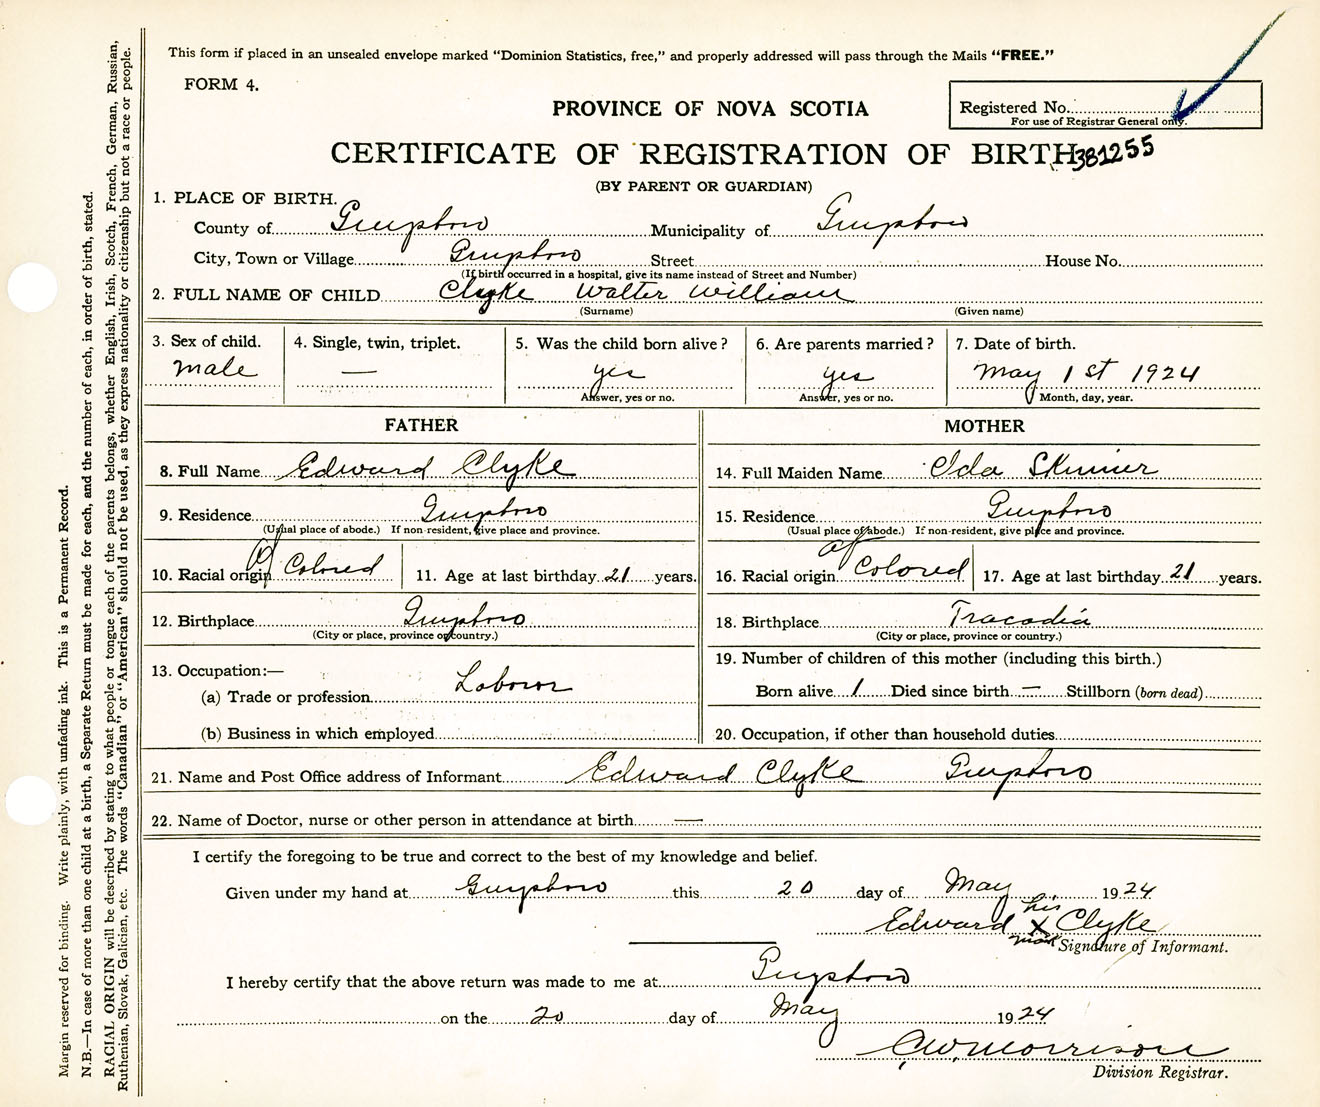 This form if placed in an unsealed envelope marked "Dominion Statistics, free," and properly addressed will pass through the Mails "FREE."
FORM 4.
PROVINCE OF NOVA SCOTIA
Registered No.
For use of Registrar General only.
CERTIFICATE OF REGISTRATION OF BIRTH 381255
(BY PARENT OR GUARDIAN)
1. PLACE OF BIRTH.
County of Guysboro Municipality of Guysboro
City, Town or Village Guysboro Street House No.
(If birth occurred in a hospital, give its name instead of Street and Number)
2. FULL NAME OF CHILD Clyke Walter William
(Surname) (Given name)
3. Sex of child. 4. Single, twin, triplet. 5. Was the child born alive? 6. Are parents married? 7. Date of birth.
male — yes yes May 1st 1924
Answer, yes or no. Answer, yes or no. Month, day, year.
FATHER MOTHER
8. Full Name Edward Clyke 14. Full Maiden Name Ida Skinner
9. Residence Guysboro 15. Residence Guysboro
(Usual place of abode.) If non-resident, give place and province. (Usual place of abode.) If non-resident, give place and province.
10. Racial origin Colored 11. Age at last birthday 21 years. 16. Racial origin Colored 17. Age at last birthday 21 years.
12. Birthplace Guysboro 18. Birthplace Tracadia
(City or place, province or country.) (City or place, province or country.)
13. Occupation:— 19. Number of children of this mother (including this birth.)
(a) Trade or profession Laboror Born alive 1 Died since birth — Stillborn (born dead)
(b) Business in which employed 20. Occupation, if other than household duties
21. Name and Post Office address of Informant Edward Clyke Guysboro
22. Name of Doctor, nurse or other person in attendance at birth —
I certify the foregoing to be true and correct to the best of my knowledge and belief.
Given under my hand at Guysboro this 20 day of May 1924
Edward his X mark Clyke
Signature of Informant.
I hereby certify that the above return was made to me at Guysboro
on the 20 day of May 1924
C.W. Morrison
Division Registrar.
Margin reserved for binding. Write plainly, with unfading ink. This is a Permanent Record.
N.B.—In case of more than one child at a birth, a Separate Return must be made for each, and the number of each, in order of birth, stated.
RACIAL ORIGIN will be described by stating to what people or tongue each of the parents belongs, whether English, Irish, Scotch, French, German, Russian,
Ruthenian, Slovak, Galician, etc. The words "Canadian" or "American" should not be used, as they express nationality or citizenship but not a race or people.